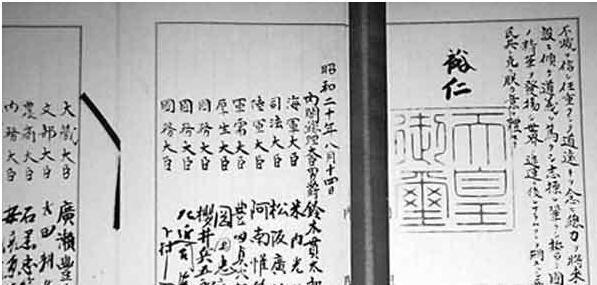 不滅ヲ信シ任重クシテ道遠キヲ念ヒ總力ヲ將來
設ニ傾ケ道義ヲ篤クシ志操ヲ鞏クシ誓テ國
ノ精華ヲ發揚シ世界ノ進運ニ後レサラムコトヲ期ス
民其レ克ク朕カ意ヲ體セヨ
裕仁
天皇
御璽
昭和二十年八月十四日
内閣總理大臣男爵 鈴木貫太郎
海軍大臣 米内光
司法大臣 松阪廣
陸軍大臣 阿南惟
軍需大臣 豊田貞次
厚生大臣 岡田忠
國務大臣 櫻井兵五
國務大臣 左近司
國務大臣 下村
大藏大臣 廣瀬豊
文部大臣 太田耕
農商大臣 石黒忠
内務大臣 安倍源